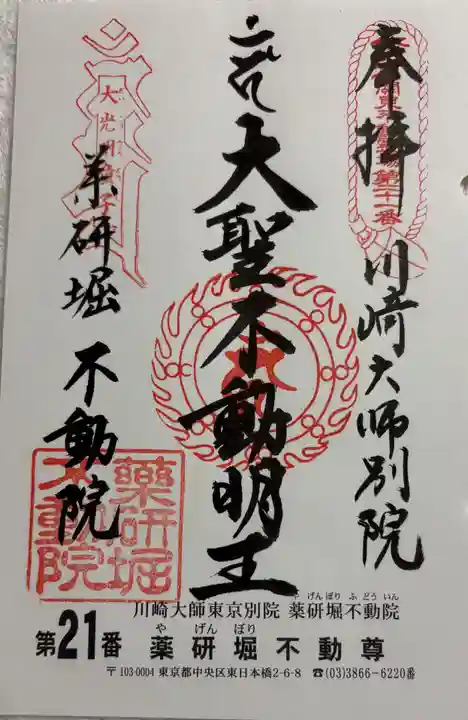 奉拝
川崎大師別院
大聖不動明王
薬研堀 不動院
薬研堀
不動院
川崎大師東京別院 薬研堀不動院
やげんぼりふどういん
第21番 薬研堀不動尊
やげんぼり
〒103-0004 東京都中央区東日本橋2-6-8 ☎(03)3866-6220番